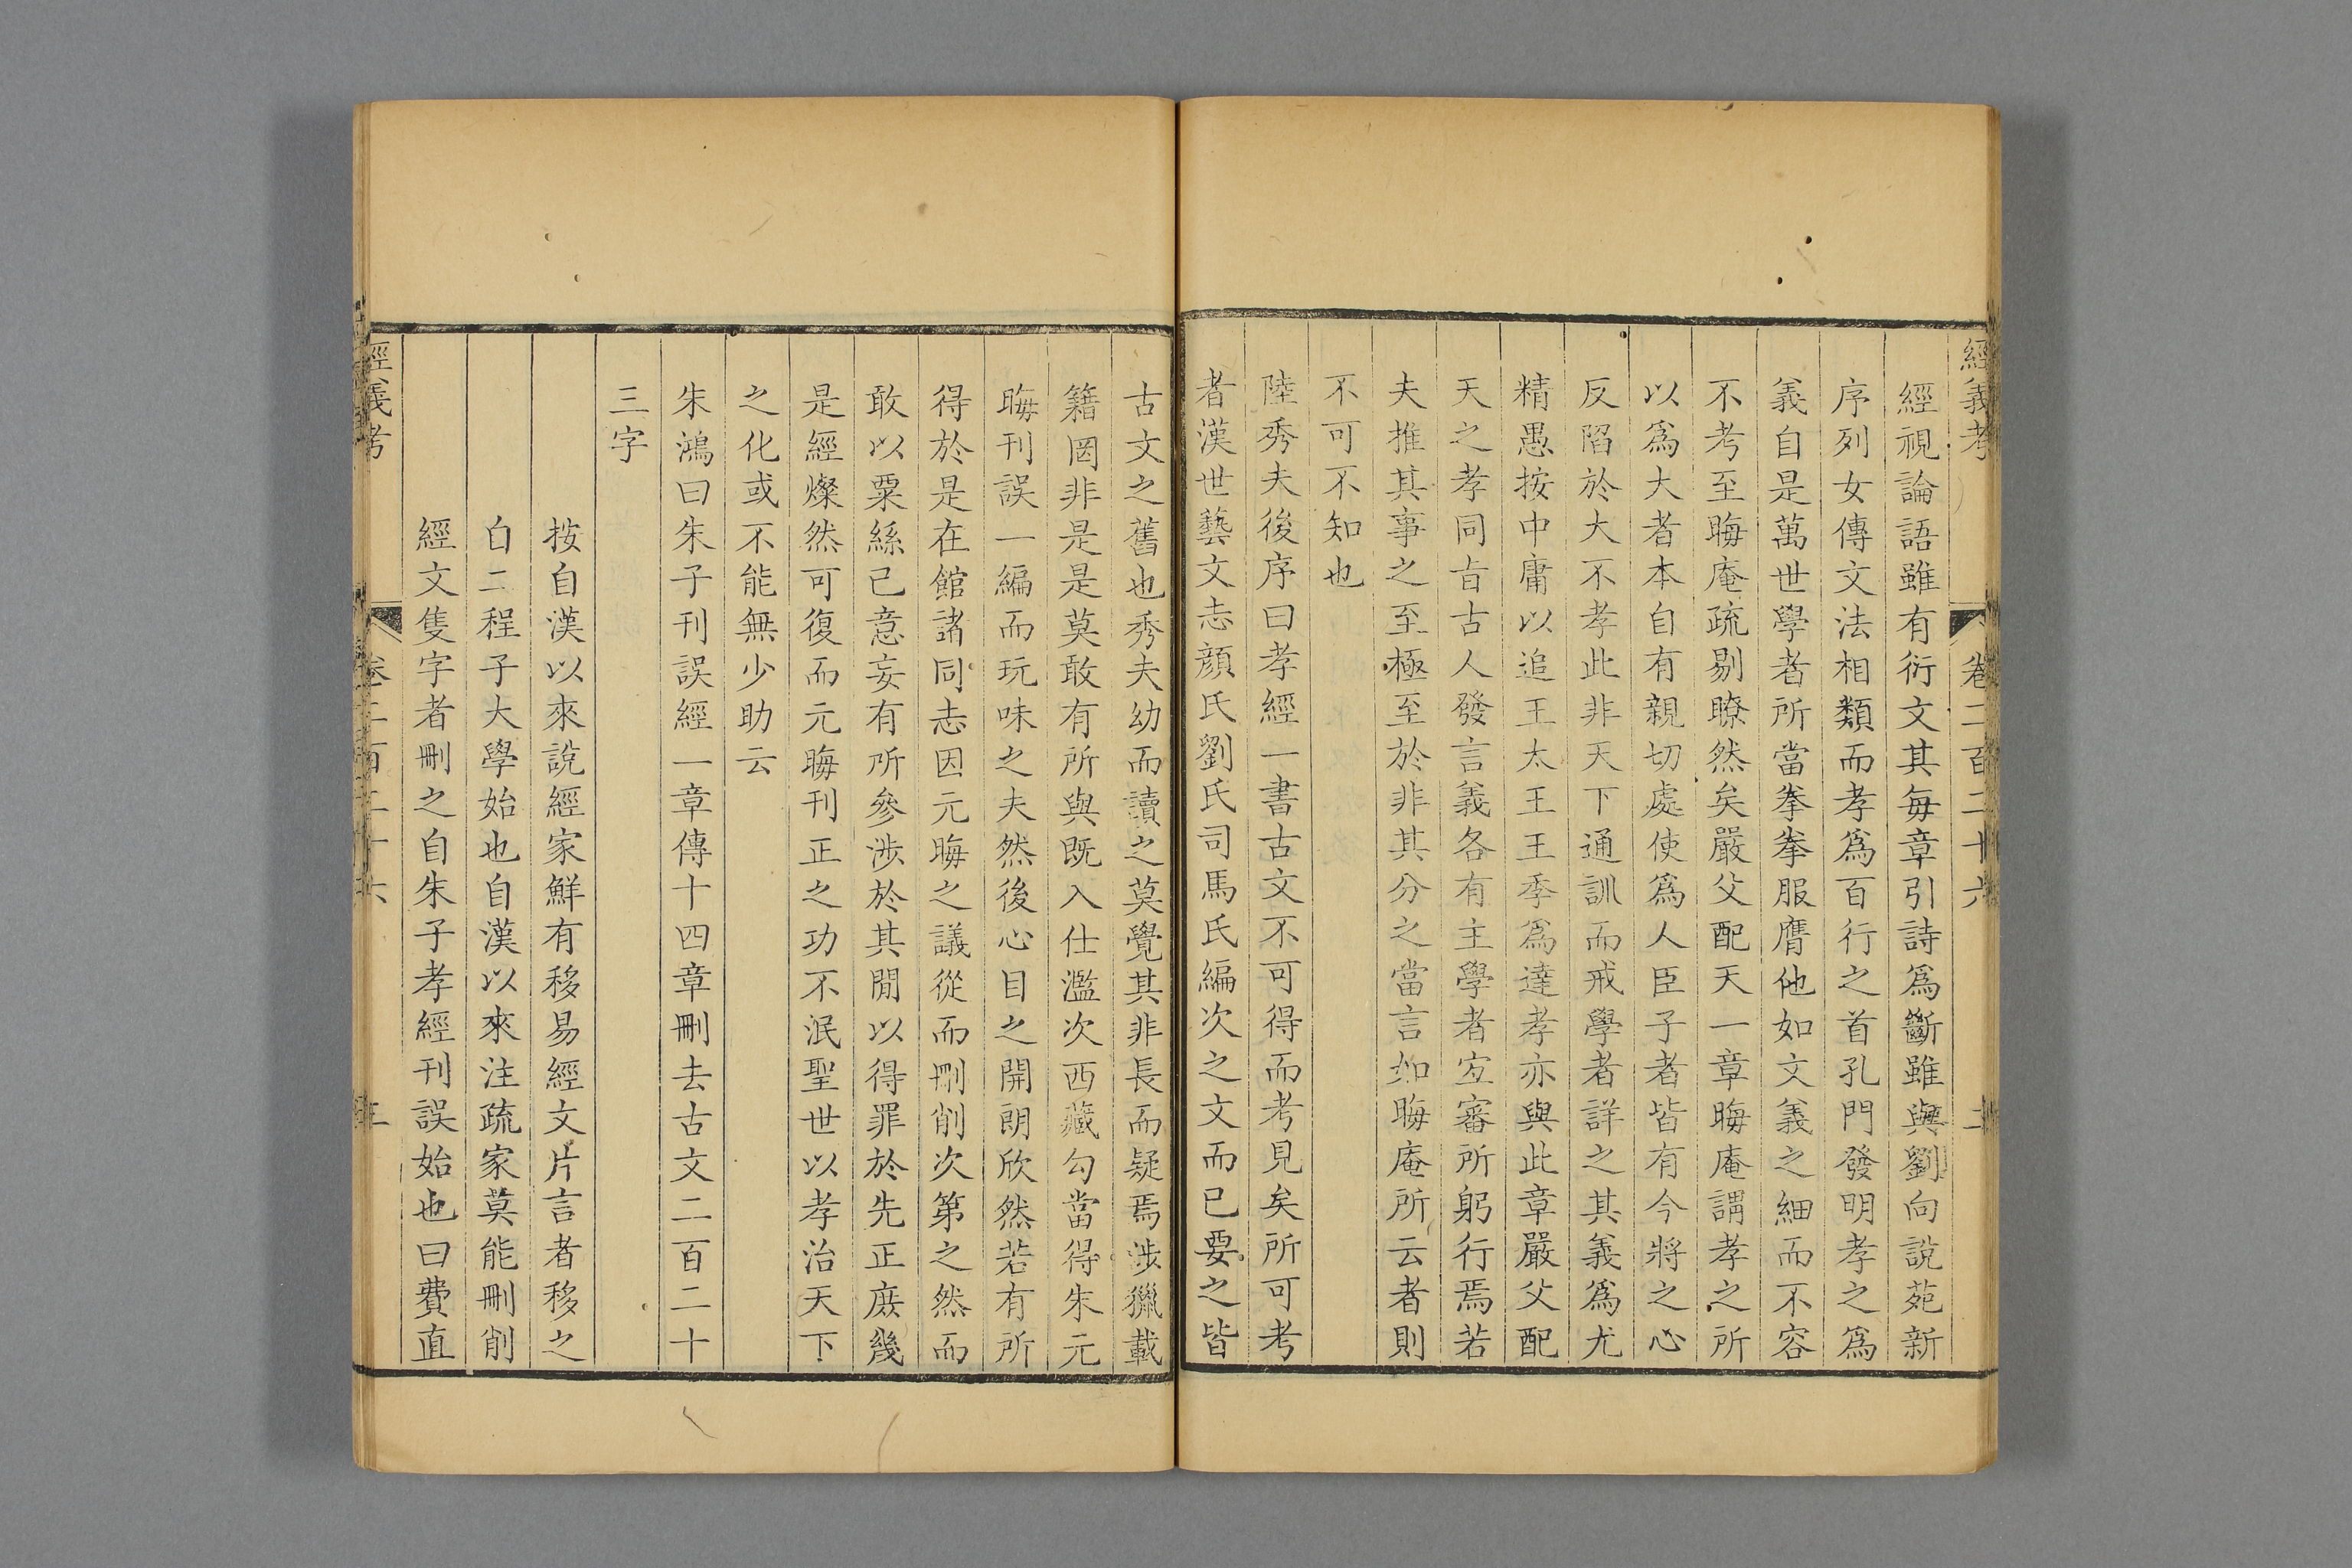 經義考 卷二百二十六 二
經視論語雖有衍文其每章引詩爲斷雖與劉向說苑新
序列女傳文法相類而孝爲百行之首孔門發明孝之爲
義自是萬世學者所當拳拳服膺他如文義之細而不容
不考至晦庵疏剔瞭然矣嚴父配天一章晦庵謂孝之所
以爲大者本自有親切處使爲人臣子者皆有今將之心
反陷於大不孝此非天下通訓而戒學者詳之其義爲尤
精愚按中庸以追王太王王季爲達孝亦與此章嚴父配
天之孝同旨古人發言義各有主學者宐審所躬行焉若
夫推其事之至極至於非其分之當言如晦庵所云者則
不可不知也
陸秀夫後序曰孝經一書古文不可得而考見矣所可考
者漢世藝文志顔氏劉氏司馬氏編次之文而已要之皆
古文之舊也秀夫幼而讀之莫覺其非長而疑焉涉獵載
籍罔非是是莫敢有所與既入仕濫次西藏勾當得朱元
晦刊誤一編而玩味之夫然後心目之開朗欣然若有所
得於是在館諸同志因元晦之議從而刪削次第之然而
敢以粟絲己意妄有所參涉於其閒以得罪於先正庻幾
是經燦然可復而元晦刊正之功不泯聖世以孝治天下
之化或不能無少助云
朱鴻曰朱子刊誤經一章傳十四章刪去古文二百二十
三字
按自漢以來說經家鮮有移易經文片言者移之
自二程子大學始也自漢以來注疏家莫能刪削
經文隻字者刪之自朱子孝經刊誤始也曰費直
經義考 卷二百二十六